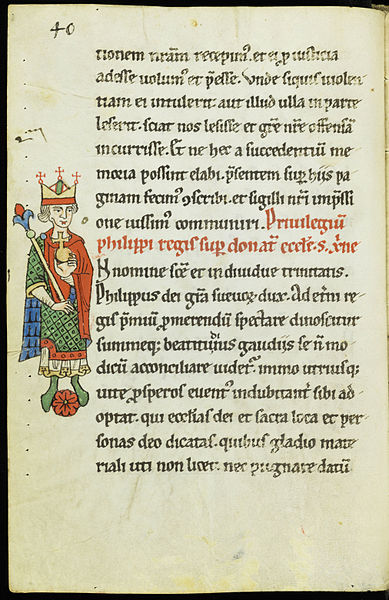 40
tionem nr̄am recepim᷒. et ei p̱ iusticia
adesse volum᷒ et p̄esse. Vnde siquis violen
tiam ei intulerit. aut illud ulla in parte
leserit. sciat nos lesisse et gr̄e nr̄e offensā
incurrisse. Et ne hec a succedentiū me
moria possint elabi. p̄sentem sup̱ hiis pa
ginam fecim᷒ ꝯscribi. et sigilli nr̄i imp̄ssi
one iussim᷒ communiri. Priuilegiū
philippi regis sup̱ donat̄ eccl̄e. s.
N nomine sc̄e et indiuidue trinitatis.
Philippus dei gr̄a sueuoꝝ dux. Ad et̄ni re
gis p̄miū promerendū spectare dinoscitur
summeqꝫ beatitudinis gaudiis se nō mo
dicū acconciliare uidet᷑. immo utriusqꝫ
uite prosperos euent᷒ indubitant᷑ sibi ad
optat. qui ecclesias dei et sacra loca et per
sonas deo dicatas. quibus gladio mate
riali uti non licet. nec pugnare datū